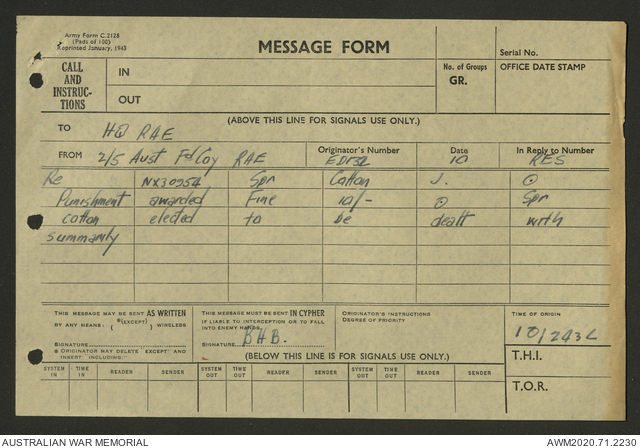 Army Form C.2128
(Pads of 100)
Reprinted January, 1943
MESSAGE FORM
Serial No.
CALL AND INSTRUC- TIONS
IN
OUT
No. of Groups
GR.
OFFICE DATE STAMP
(ABOVE THIS LINE FOR SIGNALS USE ONLY.)
TO HQ RAE
FROM 2/5 Aust Fd Coy RAE
Originator's Number ED132
Date 10
In Reply to Number RES
Re NX30954 Spr Cotton J. @
Punishment awarded Fine 10/- @ Spr
cotton elected to be dealt with
summarily
THIS MESSAGE MAY BE SENT AS WRITTEN
BY ANY MEANS. *(EXCEPT) WIRELESS
SIGNATURE
ORIGINATOR MAY DELETE "EXCEPT" AND
INSERT "INCLUDING."
THIS MESSAGE MUST BE SENT IN CYPHER
IF LIABLE TO INTERCEPTION OR TO FALL
INTO ENEMY HANDS.
SIGNATURE BHB.
ORIGINATOR'S INSTRUCTIONS
DEGREE OF PRIORITY
TIME OF ORIGIN
10/243L
T.H.I.
T.O.R.
(BELOW THIS LINE IS FOR SIGNALS USE ONLY.)
SYSTEM IN TIME IN READER SENDER SYSTEM OUT TIME OUT READER SENDER SYSTEM OUT TIME OUT READER SENDER
AUSTRALIAN WAR MEMORIAL
AWM2020.71.2230